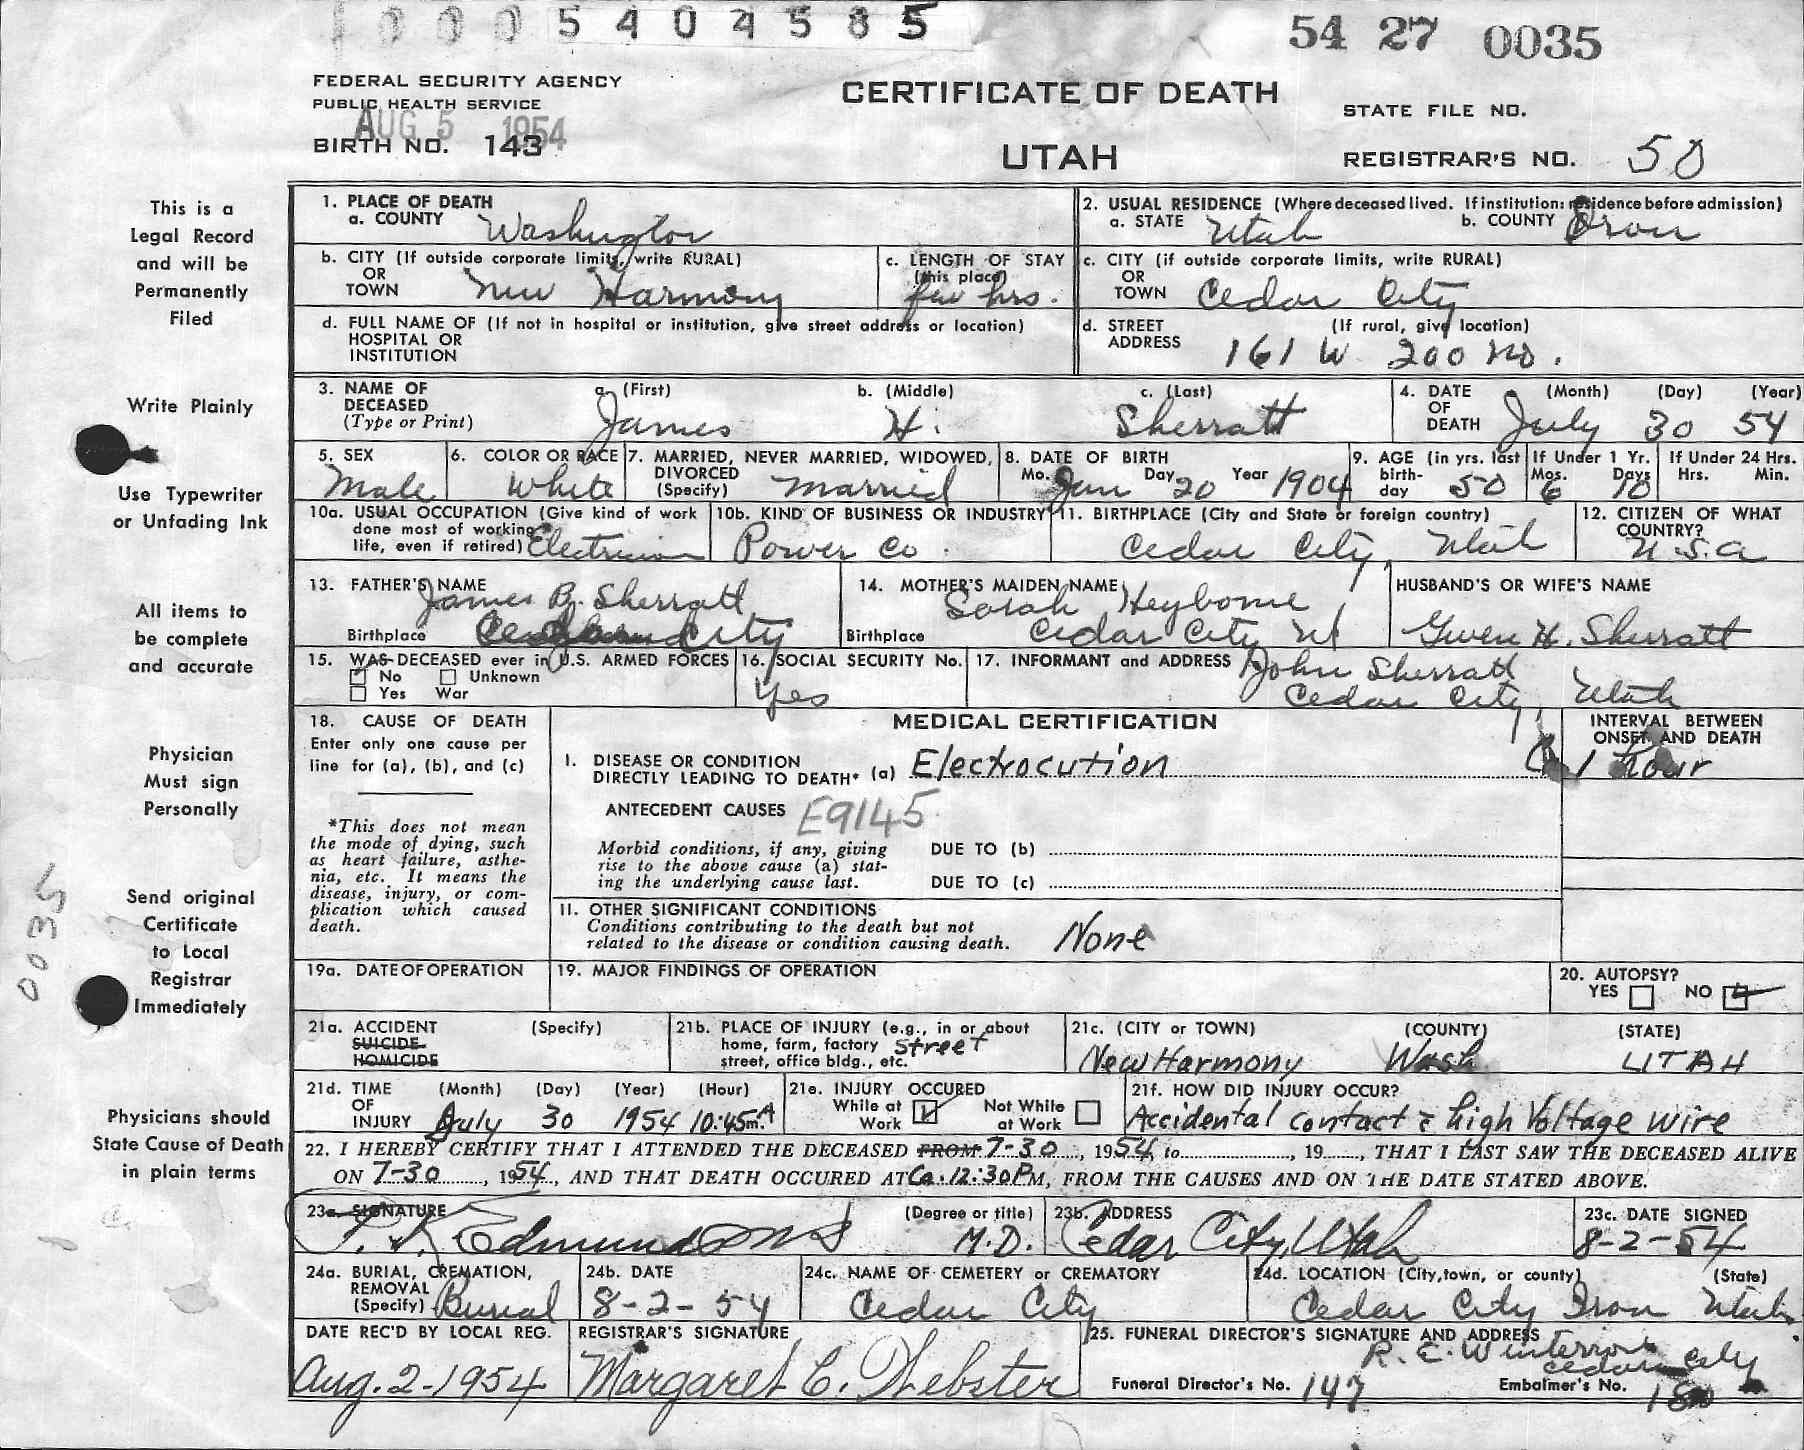 1 0 0 0 5 4 0 4 5 8 5
54 27 0035
FEDERAL SECURITY AGENCY
PUBLIC HEALTH SERVICE
AUG 5 1954
BIRTH NO. 143
CERTIFICATE OF DEATH
UTAH
STATE FILE NO.
REGISTRAR'S NO. 50
This is a
Legal Record
and will be
Permanently
Filed
Write Plainly
Use Typewriter
or Unfading Ink
All items to
be complete
and accurate
Physician
Must sign
Personally
Send original
Certificate
to Local
Registrar
Immediately
0035
Physicians should
State Cause of Death
in plain terms
1. PLACE OF DEATH
a. COUNTY Washington
2. USUAL RESIDENCE (Where deceased lived. If institution: residence before admission)
a. STATE Utah b. COUNTY Iron
b. CITY (If outside corporate limits, write RURAL)
OR
TOWN New Harmony
c. LENGTH OF STAY
(this place)
few hrs.
c. CITY (if outside corporate limits, write RURAL)
OR
TOWN Cedar City
d. FULL NAME OF (If not in hospital or institution, give street address or location)
HOSPITAL OR
INSTITUTION
d. STREET (If rural, give location)
ADDRESS 161 W 200 No.
3. NAME OF a. (First) b. (Middle) c. (Last)
DECEASED
(Type or Print) James H. Sherratt
4. DATE (Month) (Day) (Year)
OF
DEATH July 30 54
5. SEX
Male
6. COLOR OR RACE
White
7. MARRIED, NEVER MARRIED, WIDOWED,
DIVORCED
(Specify) Married
8. DATE OF BIRTH
Mo. Jan Day 20 Year 1904
9. AGE (in yrs. last
birth-
day 50
If Under 1 Yr.
Mos. Days
6 10
If Under 24 Hrs.
Hrs. Min.
10a. USUAL OCCUPATION (Give kind of work
done most of working
life, even if retired) Electrician
10b. KIND OF BUSINESS OR INDUSTRY
Power Co.
11. BIRTHPLACE (City and State or foreign country)
Cedar City, Utah
12. CITIZEN OF WHAT
COUNTRY?
U.S.A
13. FATHER'S NAME
James B. Sherratt
Birthplace City
14. MOTHER'S MAIDEN NAME
Sarah Heyborne
Birthplace Cedar City Ut
HUSBAND'S OR WIFE'S NAME
Gwen H. Sherratt
15. WAS DECEASED ever in U.S. ARMED FORCES
No Unknown
Yes War
16. SOCIAL SECURITY No.
Yes
17. INFORMANT and ADDRESS John Sherratt
Cedar City, Utah
18. CAUSE OF DEATH
Enter only one cause per
line for (a), (b), and (c)
*This does not mean
the mode of dying, such
as heart failure, asthe-
nia, etc. It means the
disease, injury, or com-
plication which caused
death.
MEDICAL CERTIFICATION
INTERVAL BETWEEN
ONSET AND DEATH
I. DISEASE OR CONDITION
DIRECTLY LEADING TO DEATH* (a) Electrocution
1 hour
ANTECEDENT CAUSES E9145
Morbid conditions, if any, giving
rise to the above cause (a) stat-
ing the underlying cause last.
DUE TO (b)
DUE TO (c)
II. OTHER SIGNIFICANT CONDITIONS
Conditions contributing to the death but not
related to the disease or condition causing death.
None
19a. DATE OF OPERATION
19. MAJOR FINDINGS OF OPERATION
20. AUTOPSY?
YES NO
21a. ACCIDENT (Specify)
SUICIDE
HOMICIDE
21b. PLACE OF INJURY (e.g., in or about
home, farm, factory
street, office bldg., etc.
street
21c. (CITY or TOWN) (COUNTY) (STATE)
New Harmony Wash UTAH
21d. TIME (Month) (Day) (Year) (Hour)
OF
INJURY July 30 1954 10:45 A m.
21e. INJURY OCCURED
While at Work
Not While at Work
21f. HOW DID INJURY OCCUR?
Accidental contact c high Voltage wire
22. I HEREBY CERTIFY THAT I ATTENDED THE DECEASED FROM 7-30, 1954, to , 19 , THAT I LAST SAW THE DECEASED ALIVE
ON 7-30, 1954, AND THAT DEATH OCCURED AT Ca. 12:30 PM, FROM THE CAUSES AND ON THE DATE STATED ABOVE.
23a. SIGNATURE (Degree or title)
Edmunds M.D.
23b. ADDRESS
Cedar City, Utah
23c. DATE SIGNED
8-2-54
24a. BURIAL, CREMATION,
REMOVAL
(Specify) Burial
24b. DATE
8-2-54
24c. NAME OF CEMETERY or CREMATORY
Cedar City
24d. LOCATION (City, town, or county) (State)
Cedar City Iron Utah.
DATE REC'D BY LOCAL REG.
Aug. 2-1954
REGISTRAR'S SIGNATURE
Margaret C. Webster
25. FUNERAL DIRECTOR'S SIGNATURE AND ADDRESS
R. E. Winterrose
Cedar City
Funeral Director's No. 147
Embalmer's No.